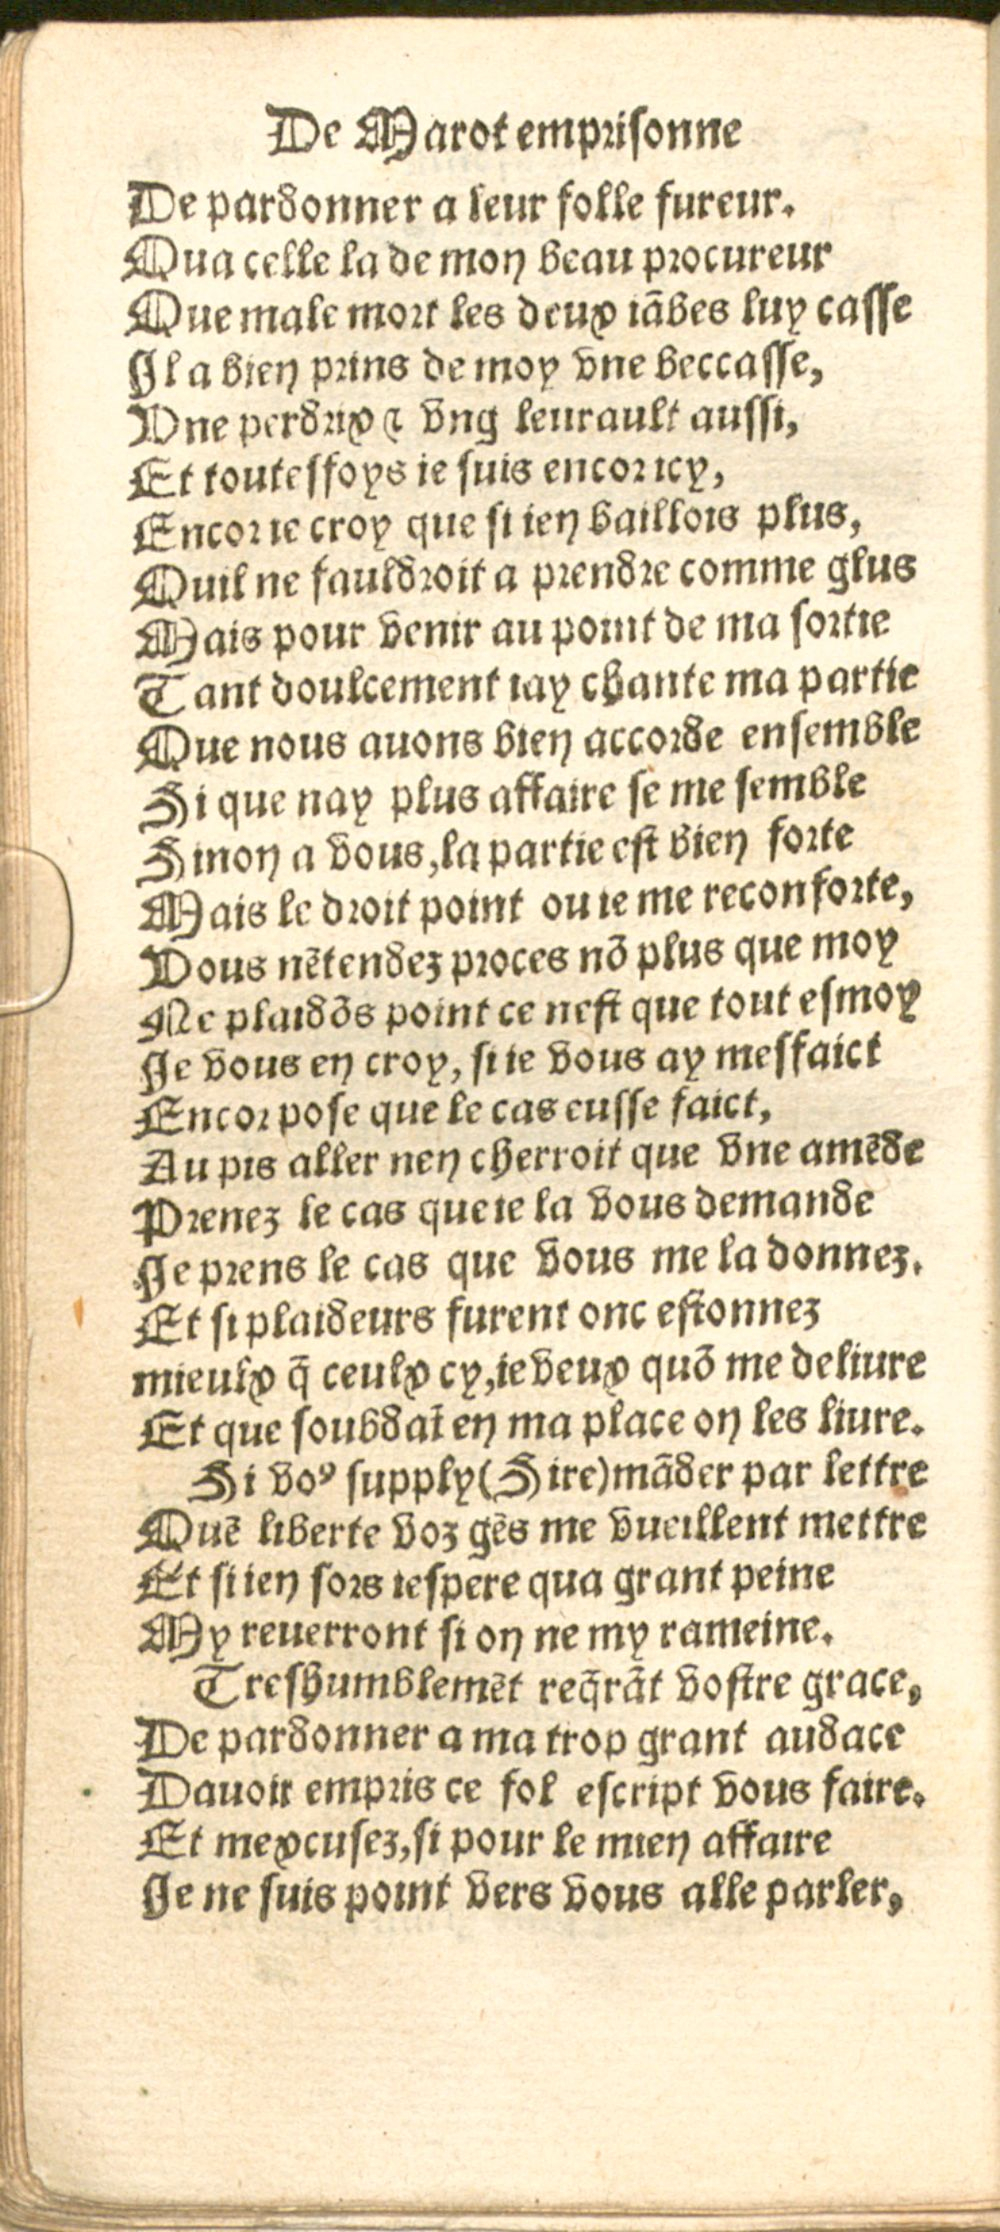 De Marot emprisonne
De pardonner a leur folle fureur.
Qua celle la de mon beau procureur
Que male mort les deux iābes luy casse
Il a bien prins de moy vne beccasse,
Vne perdrix ⁊ vng leurault aussi,
Et toutesfoys ie suis encor icy,
Encor ie croy que si ien baillois plus,
Quil ne fauldroit a prendre comme glus
Mais pour venir au point de ma sortie
Tant doulcement iay chante ma partie
Que nous auons bien accorde ensemble
Si que nay plus affaire se me semble
Sinon a vous, la partie est bien forte
Mais le droit point ou ie me reconforte,
Vous nētendez proces nō plus que moy
Ne plaidōs point ce nest que tout esmoy
Je vous en croy, si ie vous ay mesfaict
Encor pose que le cas eusse faict,
Au pis aller nen cherroit que vne amēde
Prenez le cas que ie la vous demande
Je prens le cas que vous me la donnez.
Et si plaideurs furent onc estonnez
mieulx q̄ ceulx cy, ie veux quō me deliure
Et que soubdaī en ma place on les liure.
Si voꝰ supply (Sire) māder par lettre
Quē liberte voz gēs me vueillent mettre
Et si ien sors iespere qua grant peine
My reuerront si on ne my rameine.
Treshumblemēt req̄rāt vostre grace,
De pardonner a ma trop grant audace
Dauoir empris ce fol escript vous faire.
Et mexcusez, si pour le mien affaire
Je ne suis point vers vous alle parler,